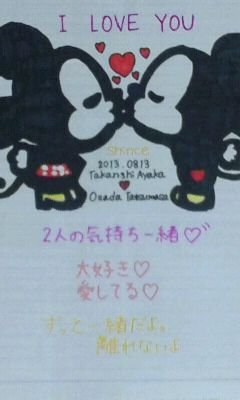 I LOVE YOU
since
2013.0813
Takanshi Ayaka
♥
Osada Tatsumasa
2人の気持ち一緒♡
大好き♡
愛してる♡
ずっと一緒だよ。
離れないよ